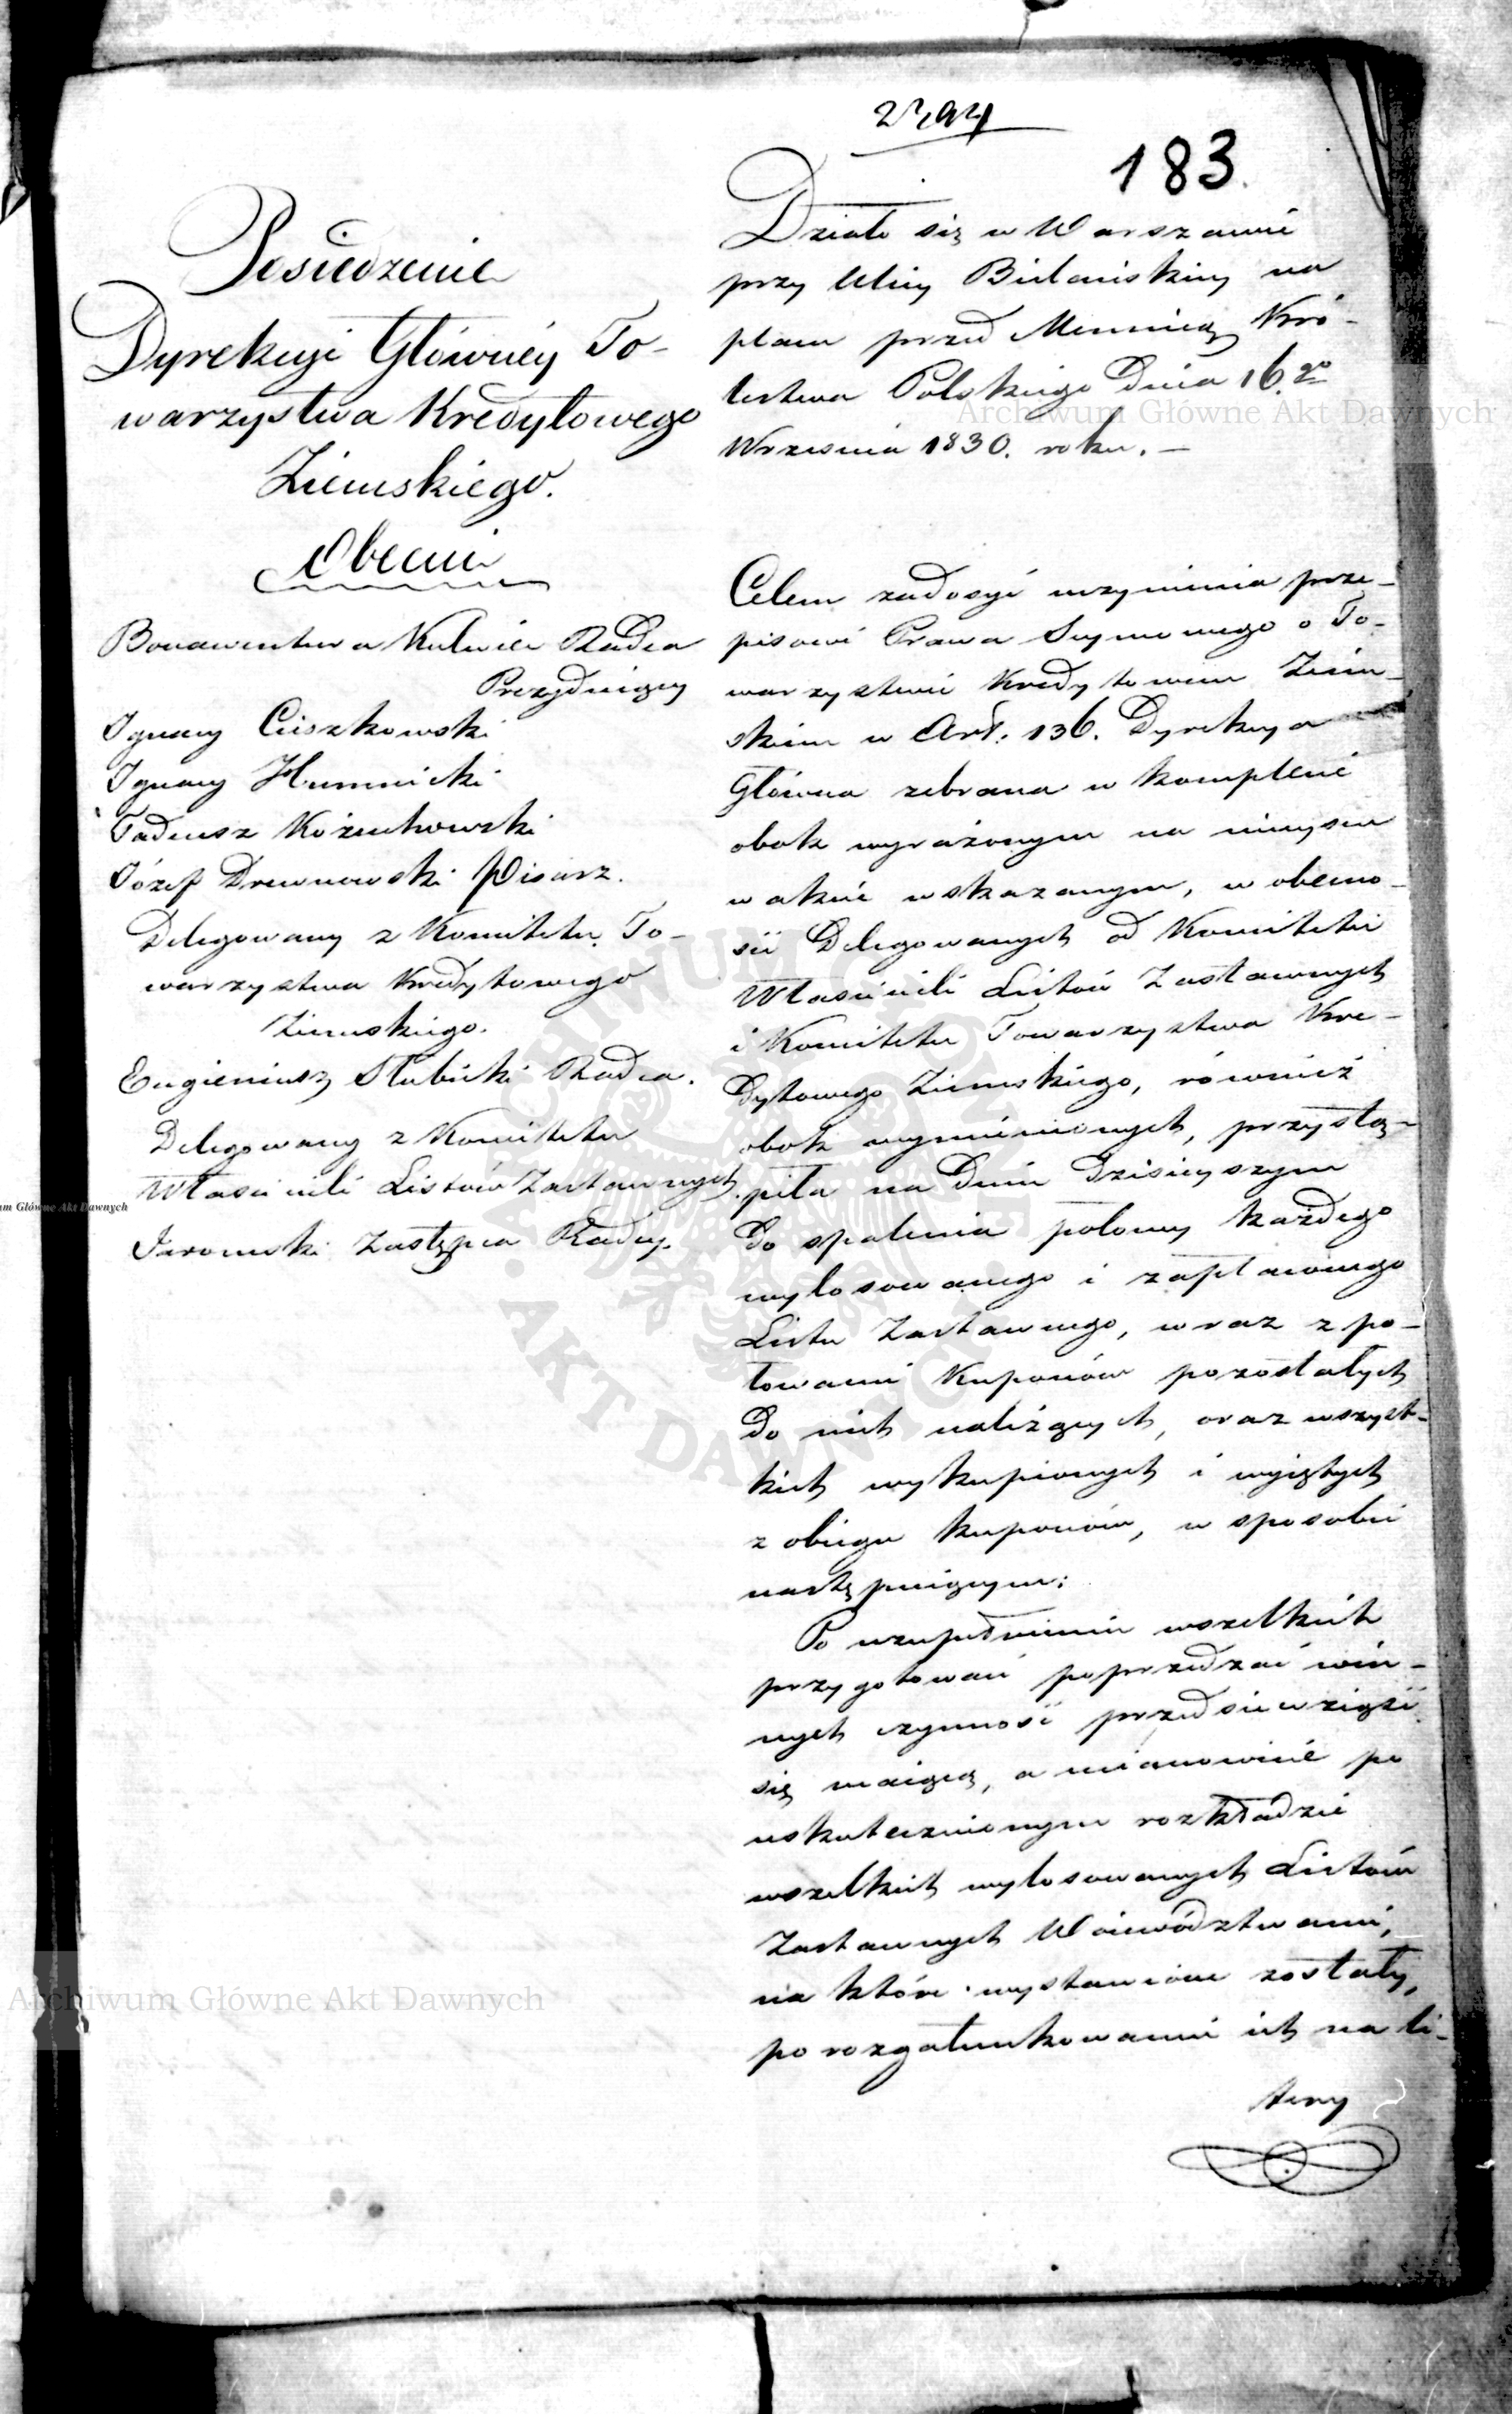 183.
Posiedzenie
Dyrekcyi Głównéy To-
warzystwa Kredytowego
Ziemskiego.
Obecni
Bonawentura Radca
Prezyduiący
Ignacy Ciszkowski
Ignacy Humnicki
Tadeusz Kożuchowski
Józef Drewnowski Pisarz.
Delegowany z Komitetu To-
warzystwa Kredytowego
Ziemskiego.
Eugieniusz Słubicki Radca.
Delegowany z Komitetu
Właścicieli Listów Zastawnych.
Zastępca Radcy.
Działo się w Warszawie
przy Ulicy Bielańskiey na
placu przed Mennicą Kró-
lestwa Polskiego Dnia 16.go
Września 1830. roku. —
Celem zadosyć uczynienia prze-
pisowi Prawa Seymowego o To-
warzystwie Kredytowem Ziem-
skiem w Art. 136. Dyrekcya
Główna zebrana w komplecie
obok wyrażonym na mieyscu
w akcie wskazanym, w obecno-
ści Delegowanych od Komitetu
Właścicieli Listów Zastawnych
i Komitetu Towarzystwa Kre-
dytowego Ziemskiego, również
obok wymienionych, przystą-
piła na Dniu dzisieyszym
do spalenia połowy każdego
wylosowanego i zapłaconego
Listu Zastawnego, wraz z po-
łowami Kuponów pozostałych
do nich należących, oraz wszyst-
kich wykupionych i wyiętych
z obiegu kuponów, w sposobie
następuiącym:
Po uzupełnieniu wszelkich
przygotowań poprzedzać win-
nych czynność przedsiewziąść
się maiącą, a mianowicie po
uskutecznionym rozkładzie
wszelkich wylosowanych Listów
Zastawnych Woiewództwami,
na które wystawione zostały,
po rozgatunkowaniu ich na li-
tery
Archiwum Główne Akt Dawnych
ARCHIWUM GŁÓWNE
· AKT DAWNYCH ·
um Główne Akt Dawnych
Archiwum Główne Akt Dawnych